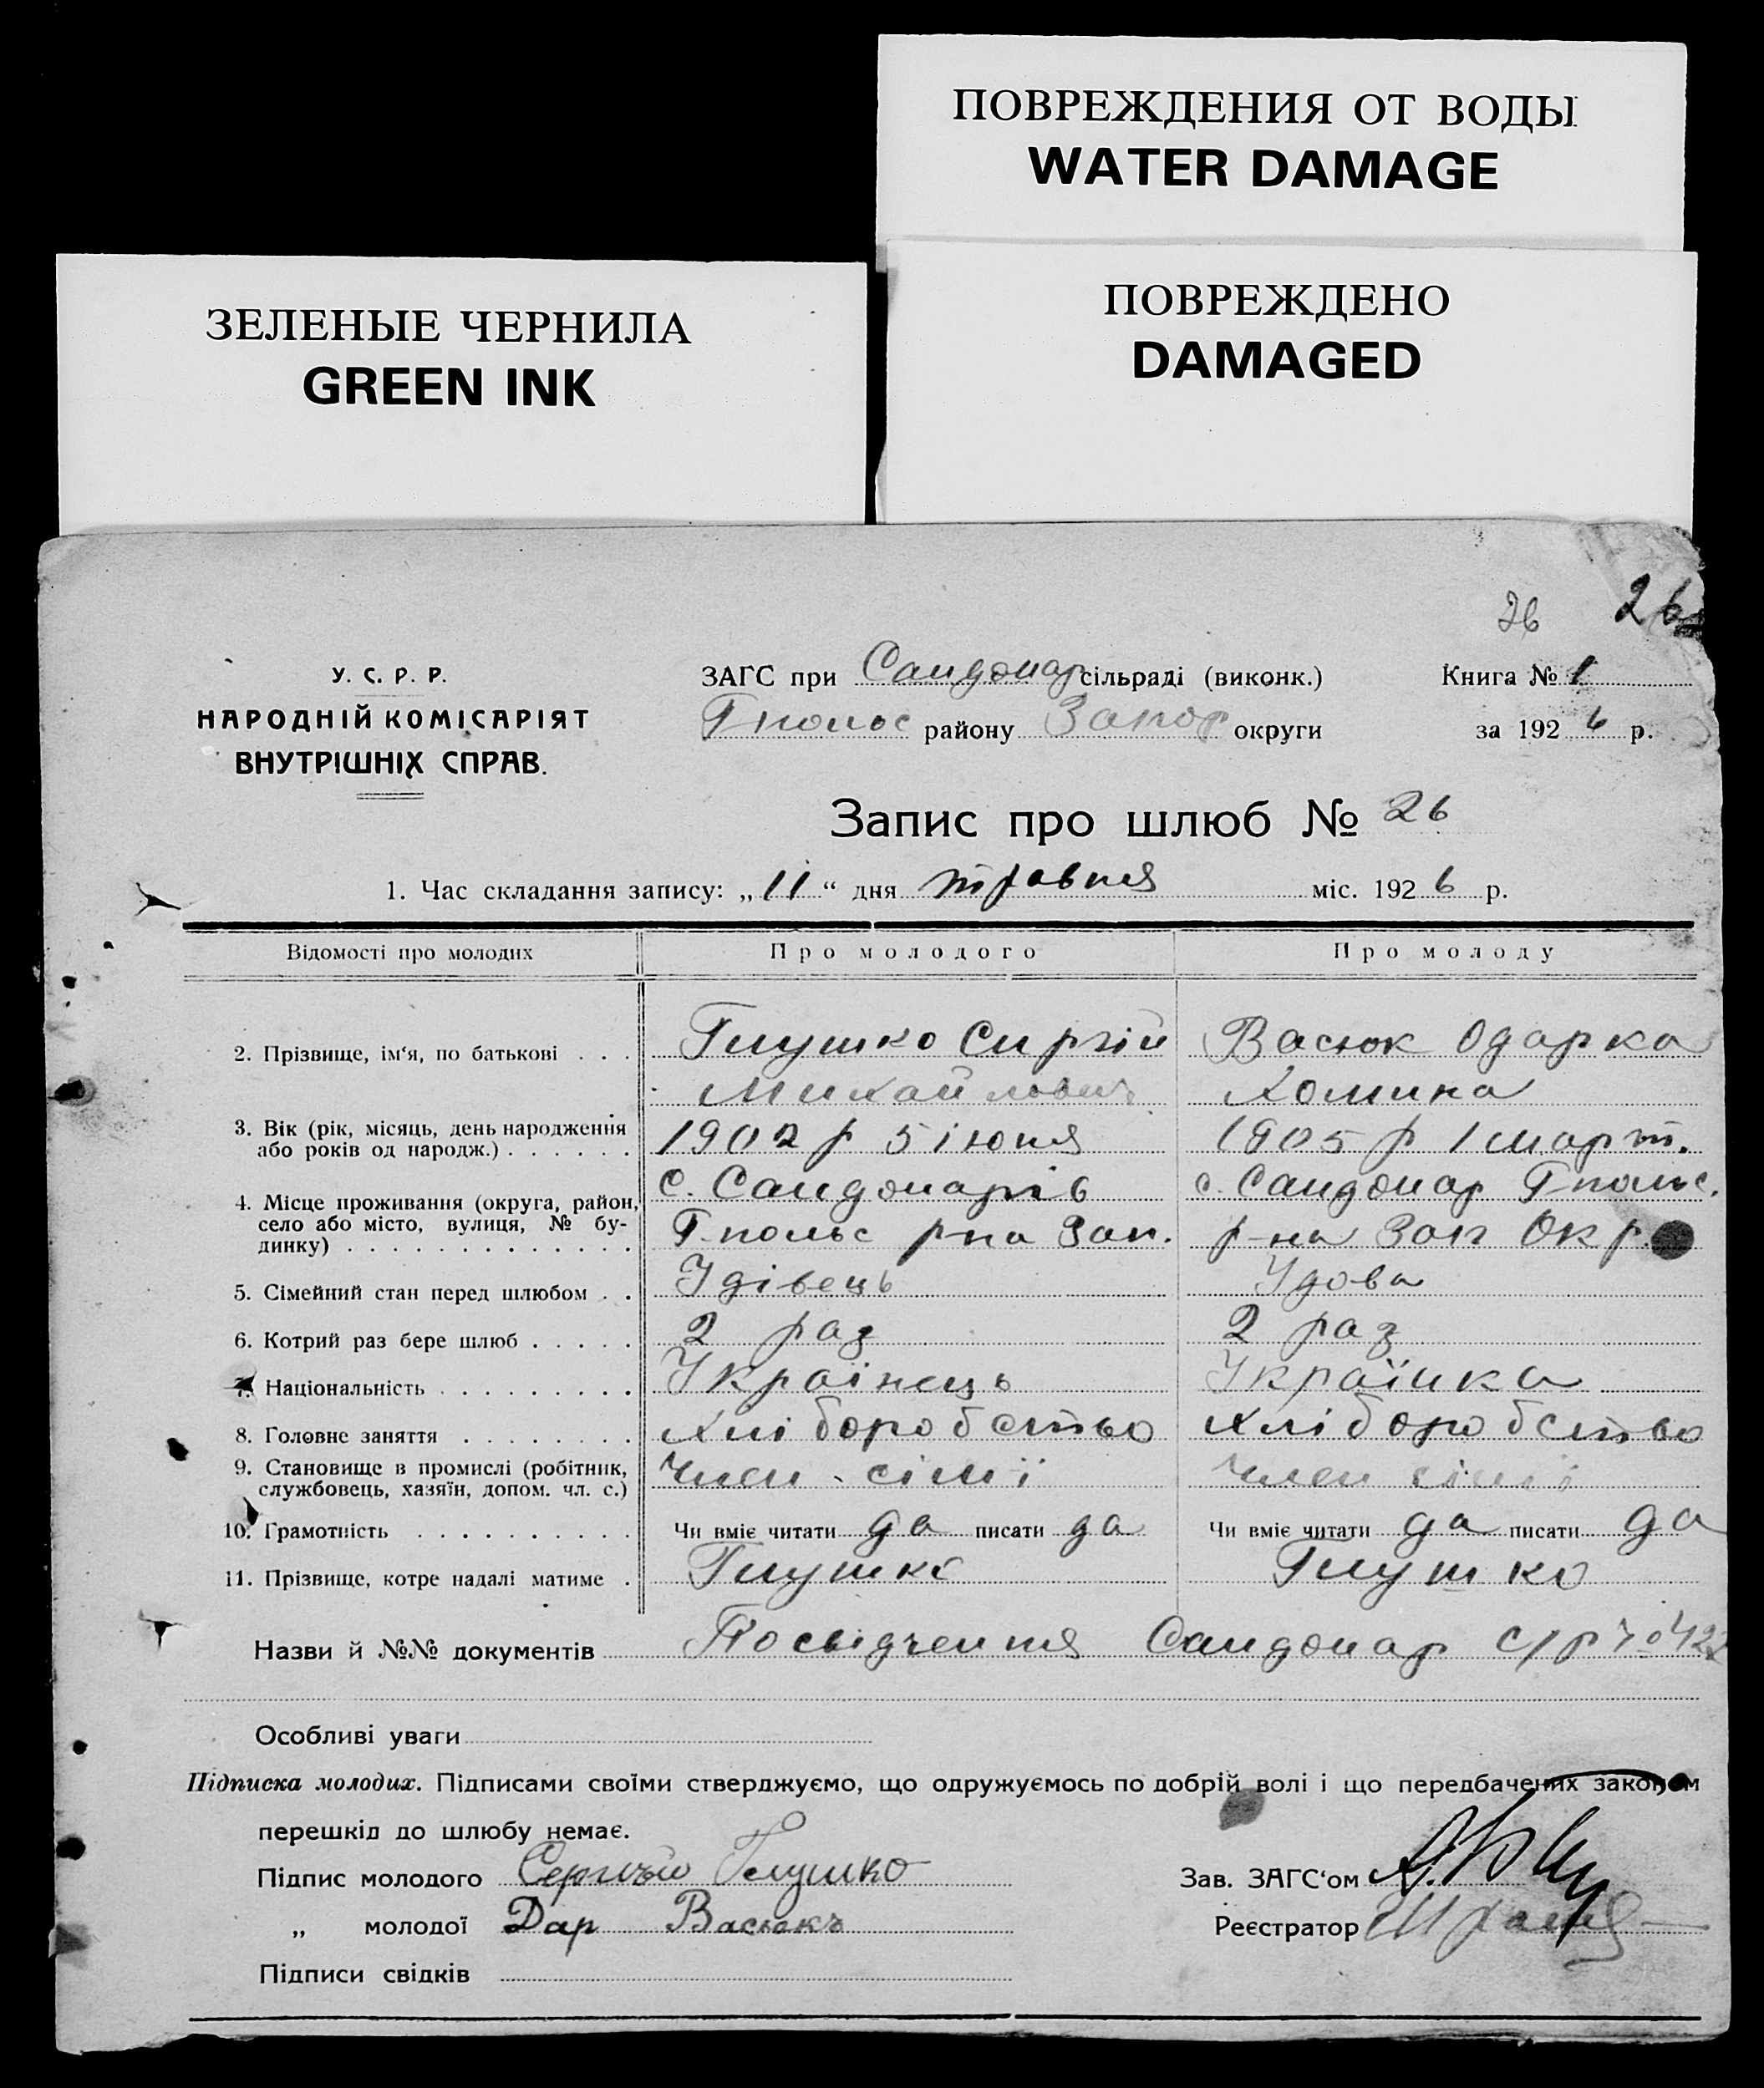 ПОВРЕЖДЕНИЯ ОТ ВОДЫ
WATER DAMAGE
ЗЕЛЕНЫЕ ЧЕРНИЛА
GREEN INK
ПОВРЕЖДЕНО
DAMAGED
26 26
У. С. Р. Р.
НАРОДНІЙ КОМІСАРІЯТ
ВНУТРІШНІХ СПРАВ.
ЗАГС при Сандомар сільраді (виконк.)
Гпольс району Запор округи
Книга № 1
за 1926 р.
Запис про шлюб № 26
1. Час складання запису: „11“ дня травня міс. 1926 р.
Відомості про молодих Про молодого Про молоду
2. Прізвище, ім‘я, по батькові . . . Глушко Сиргій Васюк Одарка
Михайлович Хомина
3. Вік (рік, місяць, день народження 1902 р 5 іюня 1905 р 1 март.
або років од народж.) . . . . . .
4. Місце проживання (округа, район, с. Сандомарів с. Сандомар Гпольс.
село або місто, вулиця, № бу- Гпольс р-на Зап. р-на Зап Окр.
динку) . . . . . . . . . . . . .
5. Сімейний стан перед шлюбом . . Удівець Удова
6. Котрий раз бере шлюб . . . . . 2 раз 2 раз
7. Національність . . . . . . . . . Українець Українка
8. Головне заняття . . . . . . . . Хліборобство Хліборобство
9. Становище в промислі (робітник, Член сімї Член сімї
службовець, хазяїн, допом. чл. с.)
10. Грамотність . . . . . . . . . . Чи вміє читати да писати да Чи вміє читати да писати да
11. Прізвище, котре надалі матиме . Глушко Глушко
Назви й №№ документів Посвідчення Сандомар с/р
Особливі уваги
Підписка молодих. Підписами своїми стверджуємо, що одружуємось по добрій волі і що передбачених законом
перешкід до шлюбу немає.
Підпис молодого Сергъй Глушко Зав. ЗАГС‘ом
„ молодої Дар Васюкъ Реєстратор
Підписи свідків